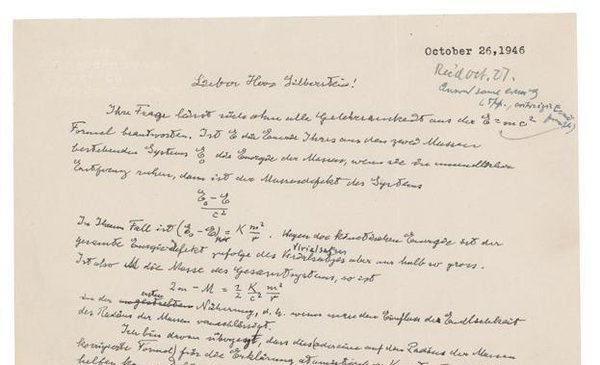 October 26, 1946
Rec'd Oct. 27.
Answd same
Lieber Herr Silberstein!
Ihre Frage lässt sich ohne alle Gelehrsamkeit aus der E = mc²
Formel beantworten. Ist E die Energie Ihres aus den zwei Massen
bestehenden Systems E₀ die Energie der Massen, wenn sie in unendlicher
Entfernung ruhen, dann ist der Massendefekt des Systems
E₀ - E
c²
In Ihrem Fall ist (E₀ - E) = K m²/r. Wegen der kinetischen Energie ist der
Virialsatzes
gesamte Energiedefekt zufolge des aber nur halb so gross.
Ist also M die Masse des Gesamtsystems, so ist
2m - M = 1/2 K/c² m²/r
in der ersten Näherung, d. h. wenn man den Einfluss der Endlichkeit
des Radius der Massen vernachlässigt.
Ich bin davon überzeugt, dass dies (oder eine auf den Radius der Massen
Formel) für die Erklärung
helfen